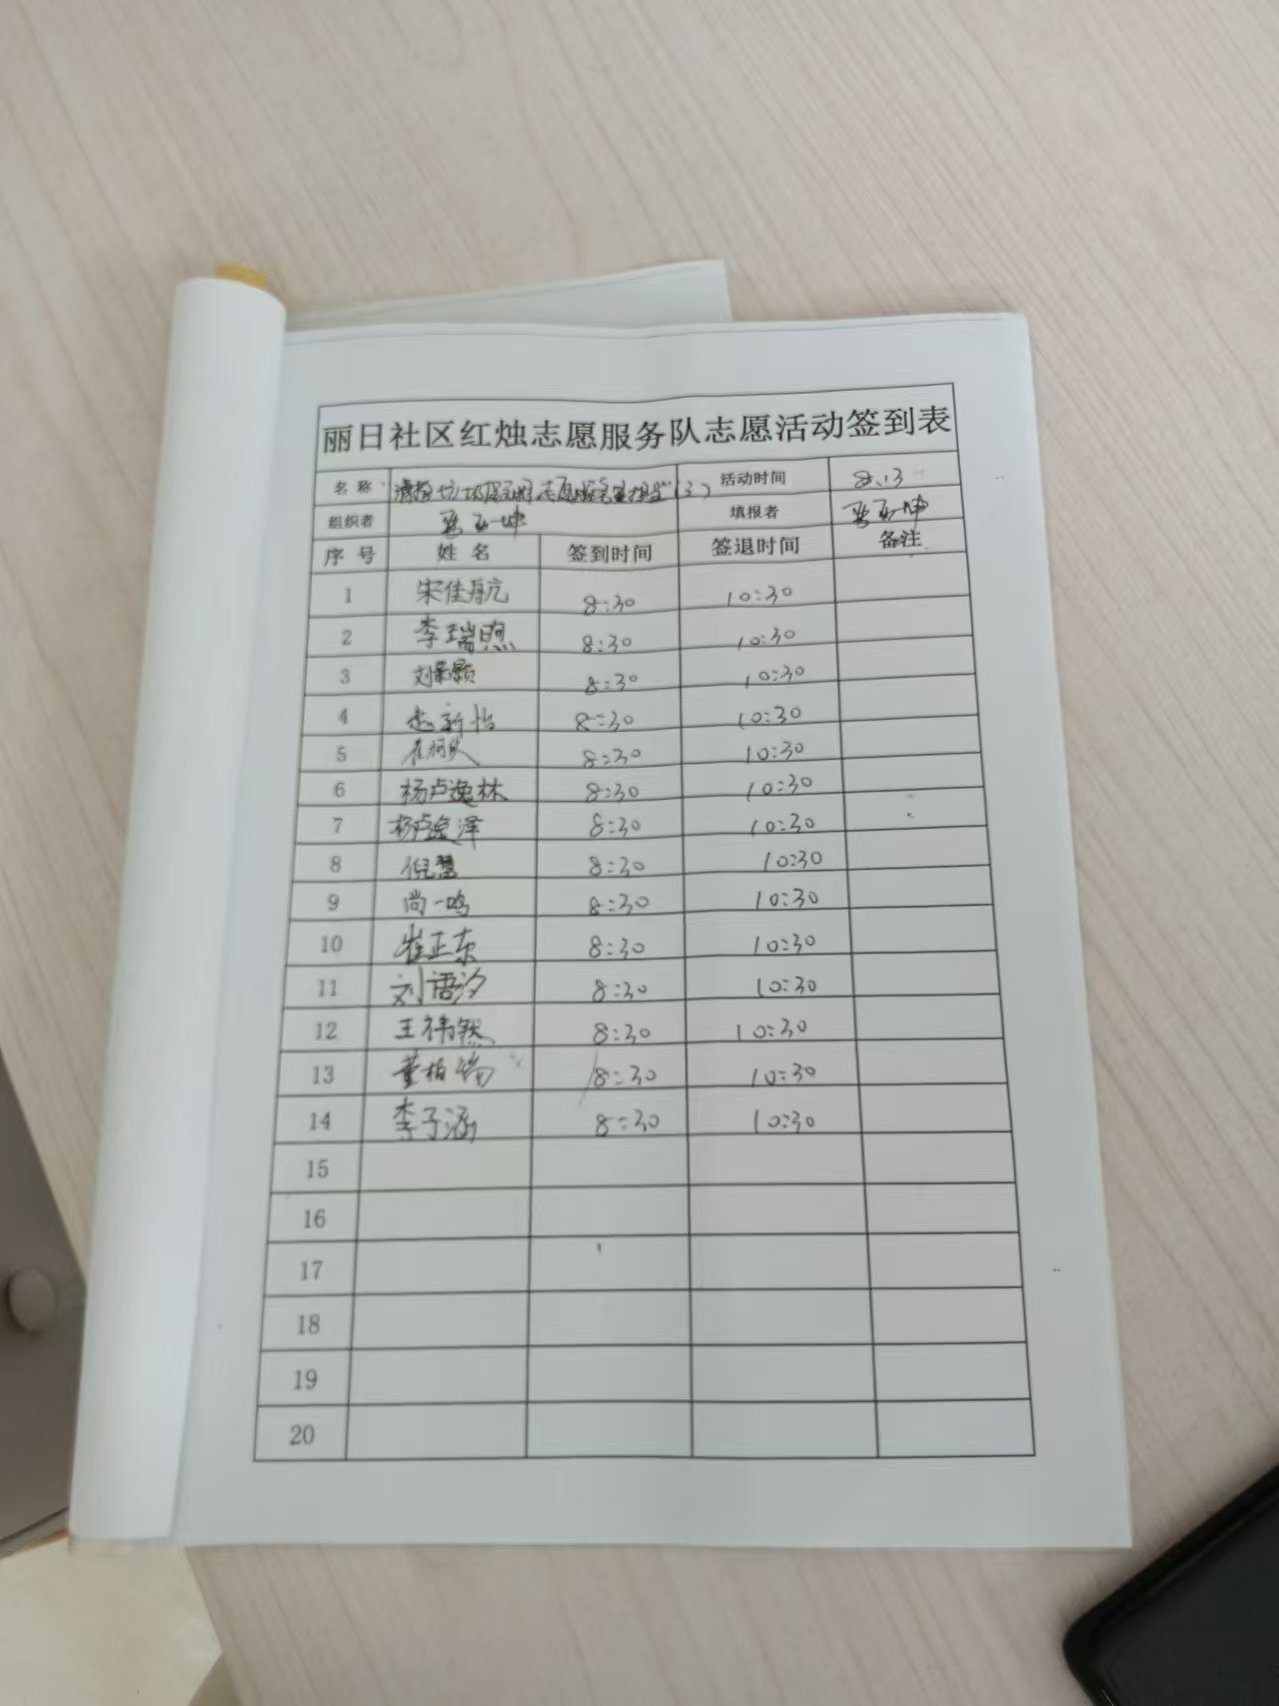 丽日社区红烛志愿服务队志愿活动签到表
名称 活动时间 8.13
组织者 填报者
序号 姓名 签到时间 签退时间 备注
1 宋佳航 8:30 10:30
2 李瑞煦 8:30 10:30
3 8:30 10:30
4 8:30 10:30
5 8:30 10:30
6 杨卢逸林 8:30 10:30
7 杨卢逸泽 8:30 10:30
8 倪慧 8:30 10:30
9 尚一鸣 8:30 10:30
10 崔正东 8:30 10:30
11 刘语汐 8:30 10:30
12 王祎然 8:30 10:30
13 8:30 10:30
14 李子涵 8:30 10:30
15
16
17
18
19
20